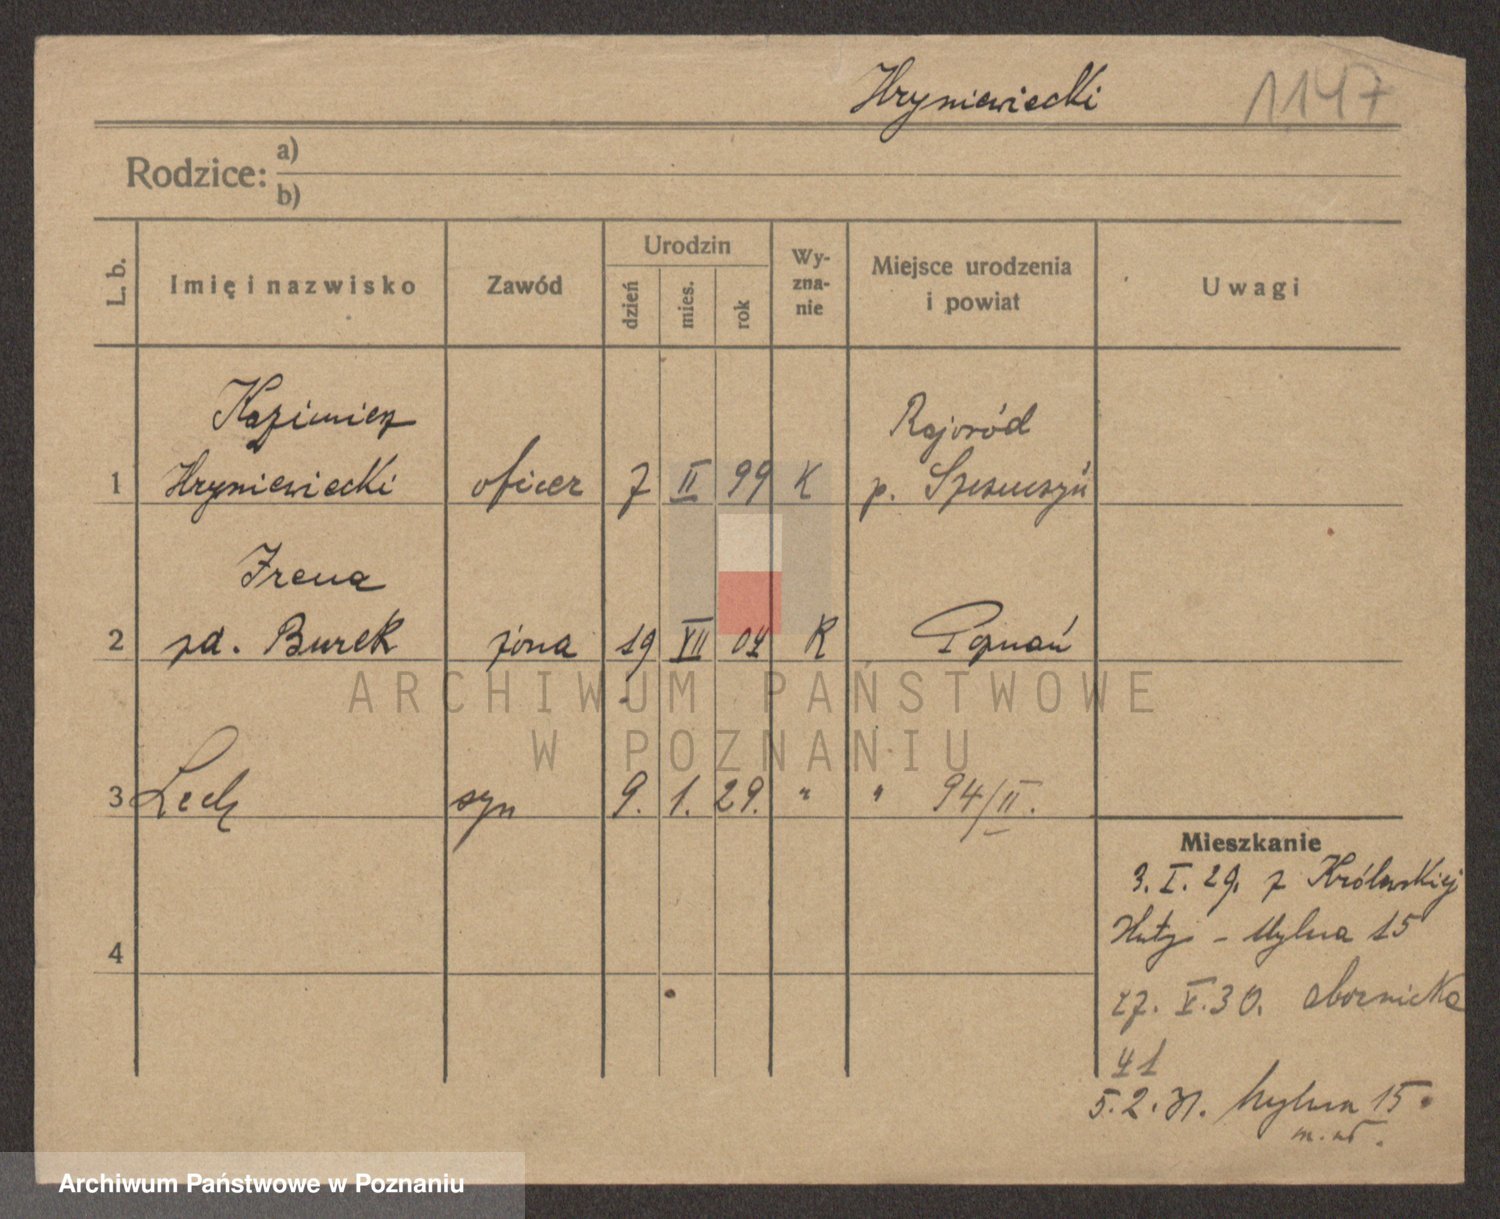 Hryniewiecki 1147
Rodzice: a)
b)
L. b. Imię i nazwisko Zawód Urodzin dzień mies. rok Wy-zna-nie Miejsce urodzenia i powiat Uwagi
Kazimierz Rajgród
1 Hryniewiecki oficer 7 II 99 K p. Szczuczyń
Irena
2 zd. Burek żona 19 XII 04 K Poznań
ARCHIWUM PAŃSTWOWE
W POZNANIU
3 Lech syn 9. 1. 29. " " 94/II.
Mieszkanie
3. I. 29. z Królewskiej
Huty - Mylna 15
4
27. V. 30. Obornicka
41
5. 2. 31. Mylna 15.
Archiwum Państwowe w Poznaniu